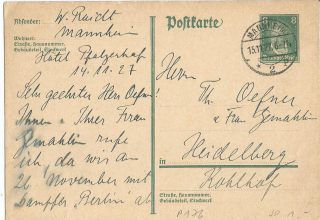 Absender: W. Raidt
Mannheim
Wohnort:
Straße, Hausnummer,
Gebäudeteil, Stockwerk
Hotel Pfalzerhof
14.11.27
Sehr geehrter Herr Oefner
Ihnen u Ihrer Frau
Gemahlin rufe
ich da wir am
26 November mit
Dampfer "Berlin" ab
Postkarte
MANNHEIM
15.11.27.
2
8
Deutsches Reich
Herrn
Th. Oefner
u Frau Gemahlin
in Heidelberg
Kohlhof
Straße, Hausnummer,
Gebäudeteil, Stockwerk
P176